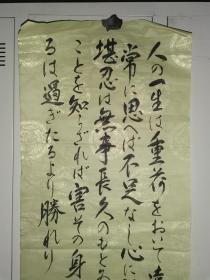 人の一生は重荷をおいて
常に思へば不足なし心に
堪忍は無事長久のもと
ことを知らざれば害その身
るは過ぎたるより勝れり